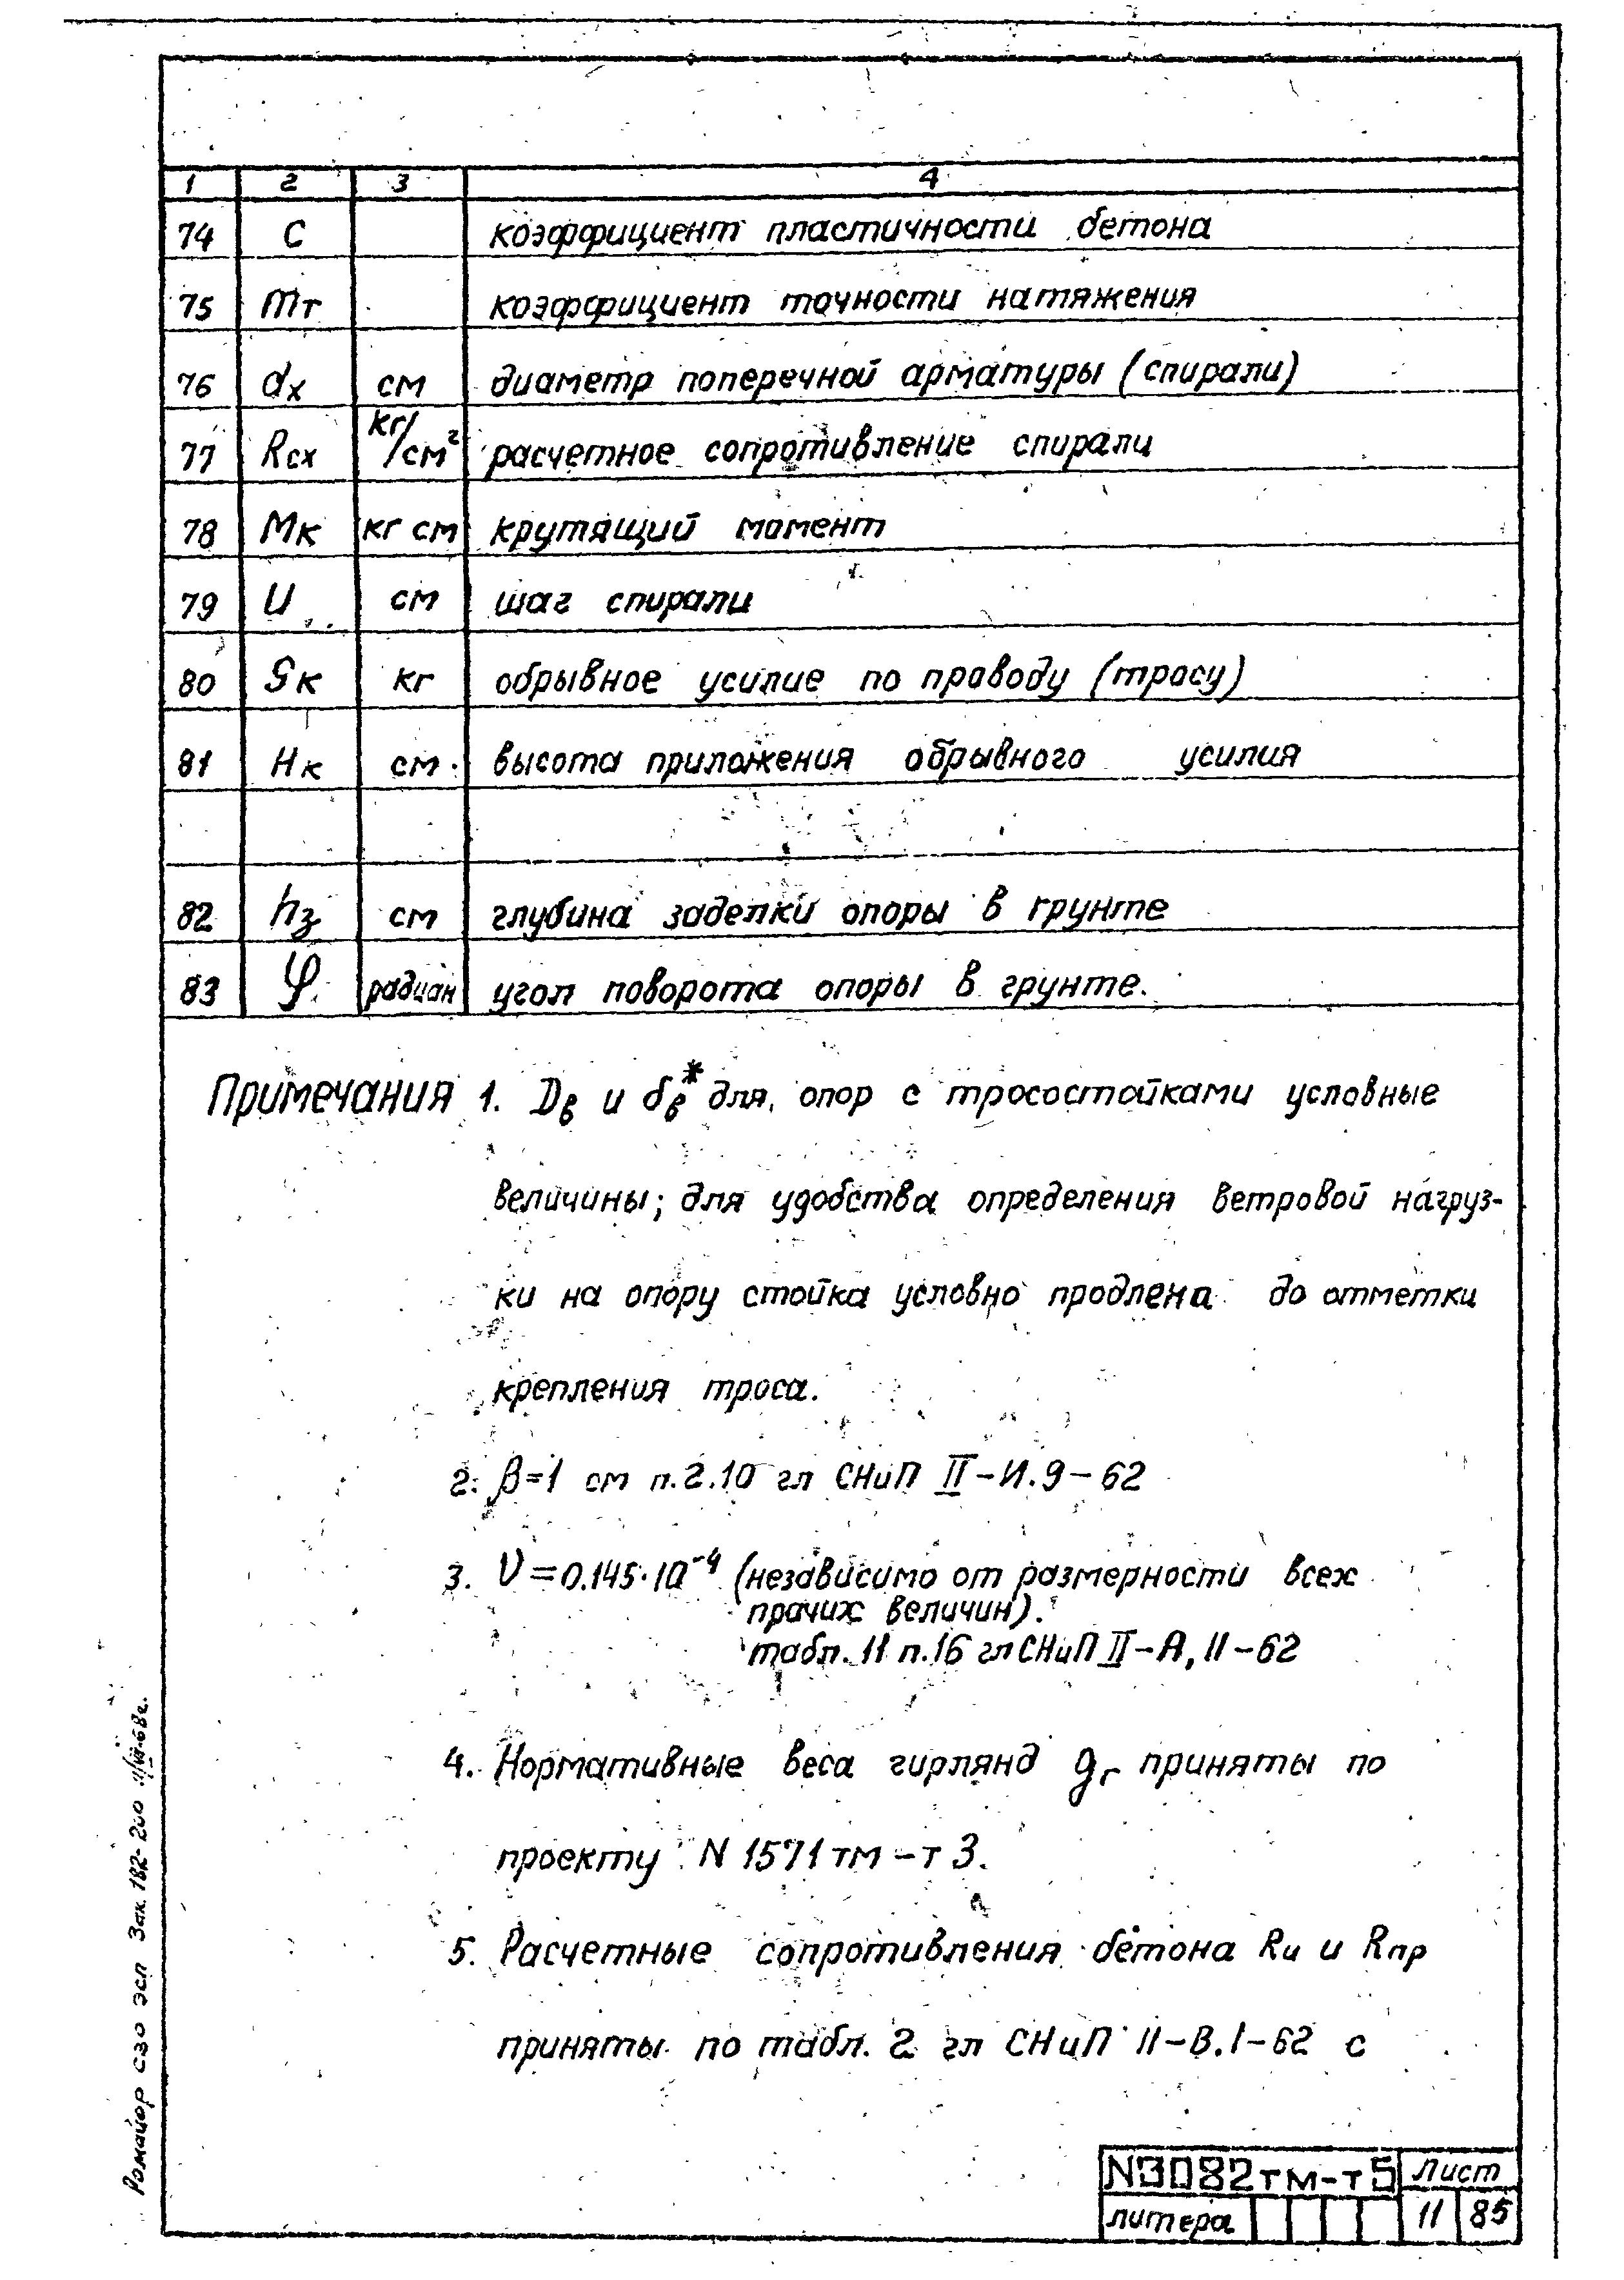 1 2 3 4
74 С коэффициент пластичности бетона
75 mт коэффициент точности натяжения
76 dх см диаметр поперечной арматуры (спирали)
77 Rсх кг/см² расчетное сопротивление спирали
78 Мк кг см крутящий момент
79 U см шаг спирали
80 Sк кг обрывное усилие по проводу (тросу)
81 Нк см. высота приложения обрывного усилия
82 hз см глубина заделки опоры в грунте
83 φ радиан угол поворота опоры в грунте.
Примечания 1. Dв и δв* для опор с тросостойками условные
величины; для удобства определения ветровой нагруз-
ки на опору стойка условно продлена до отметки
крепления троса.
2. β=1 см п.2.10 гл СНиП II-И.9-62
3. υ=0.145·10⁻⁴ (независимо от размерности всех
прочих величин).
табл. 11 п.16 гл СНиП II-А, 11-62
4. Нормативные веса гирлянд gг приняты по
проекту N 1571тм-т3.
5. Расчетные сопротивления бетона Rи и Rпр
приняты по табл. 2 гл СНиП II-В.1-62 с
Ромайор СЗО ЭСП Зак. 182-200
N3082тм-т5 Лист
литера 11 85